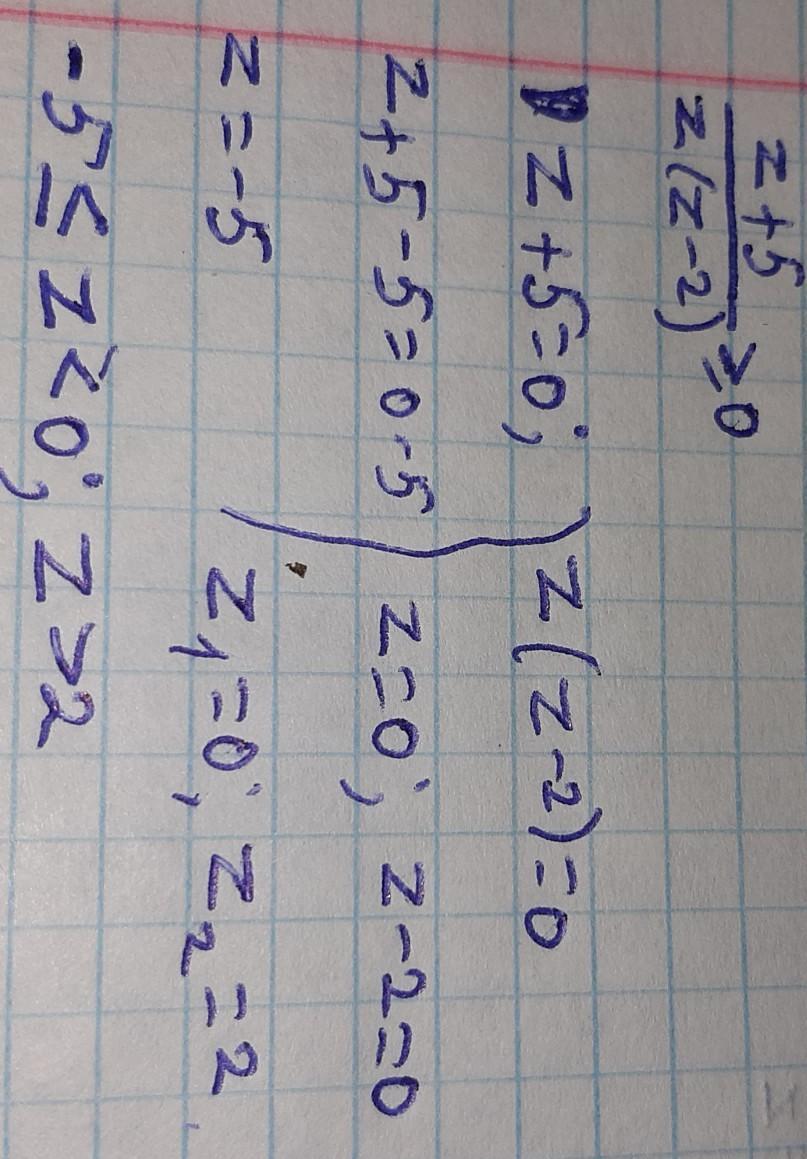 z+5
z(z-2) ≥0
z+5=0; z(z-2)=0
z+5-5=0-5 z=0; z-2=0
z=-5 z₁=0; z₂=2
-5≤z<0; z>2